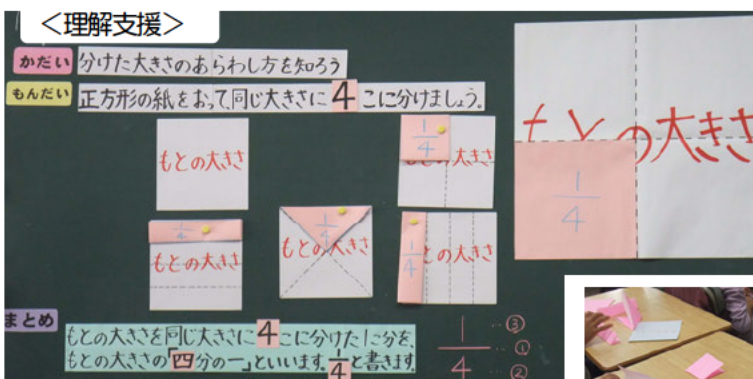 ＜理解支援＞
かだい 分けた大きさのあらわし方を知ろう
もんだい 正方形の紙をおって、同じ大きさに4こに分けましょう。
もとの大きさ
1/4
大きさ
もとの大きさ
1/4
1/4
もとの大きさ
1/4
もとの大きさ
1/4
との大きさ
まとめ もとの大きさを同じ大きさに4こに分けた1こ分を、
もとの大きさの「四分の一」といいます。1/4と書きます。
1 … ③
― … ①
4 … ②